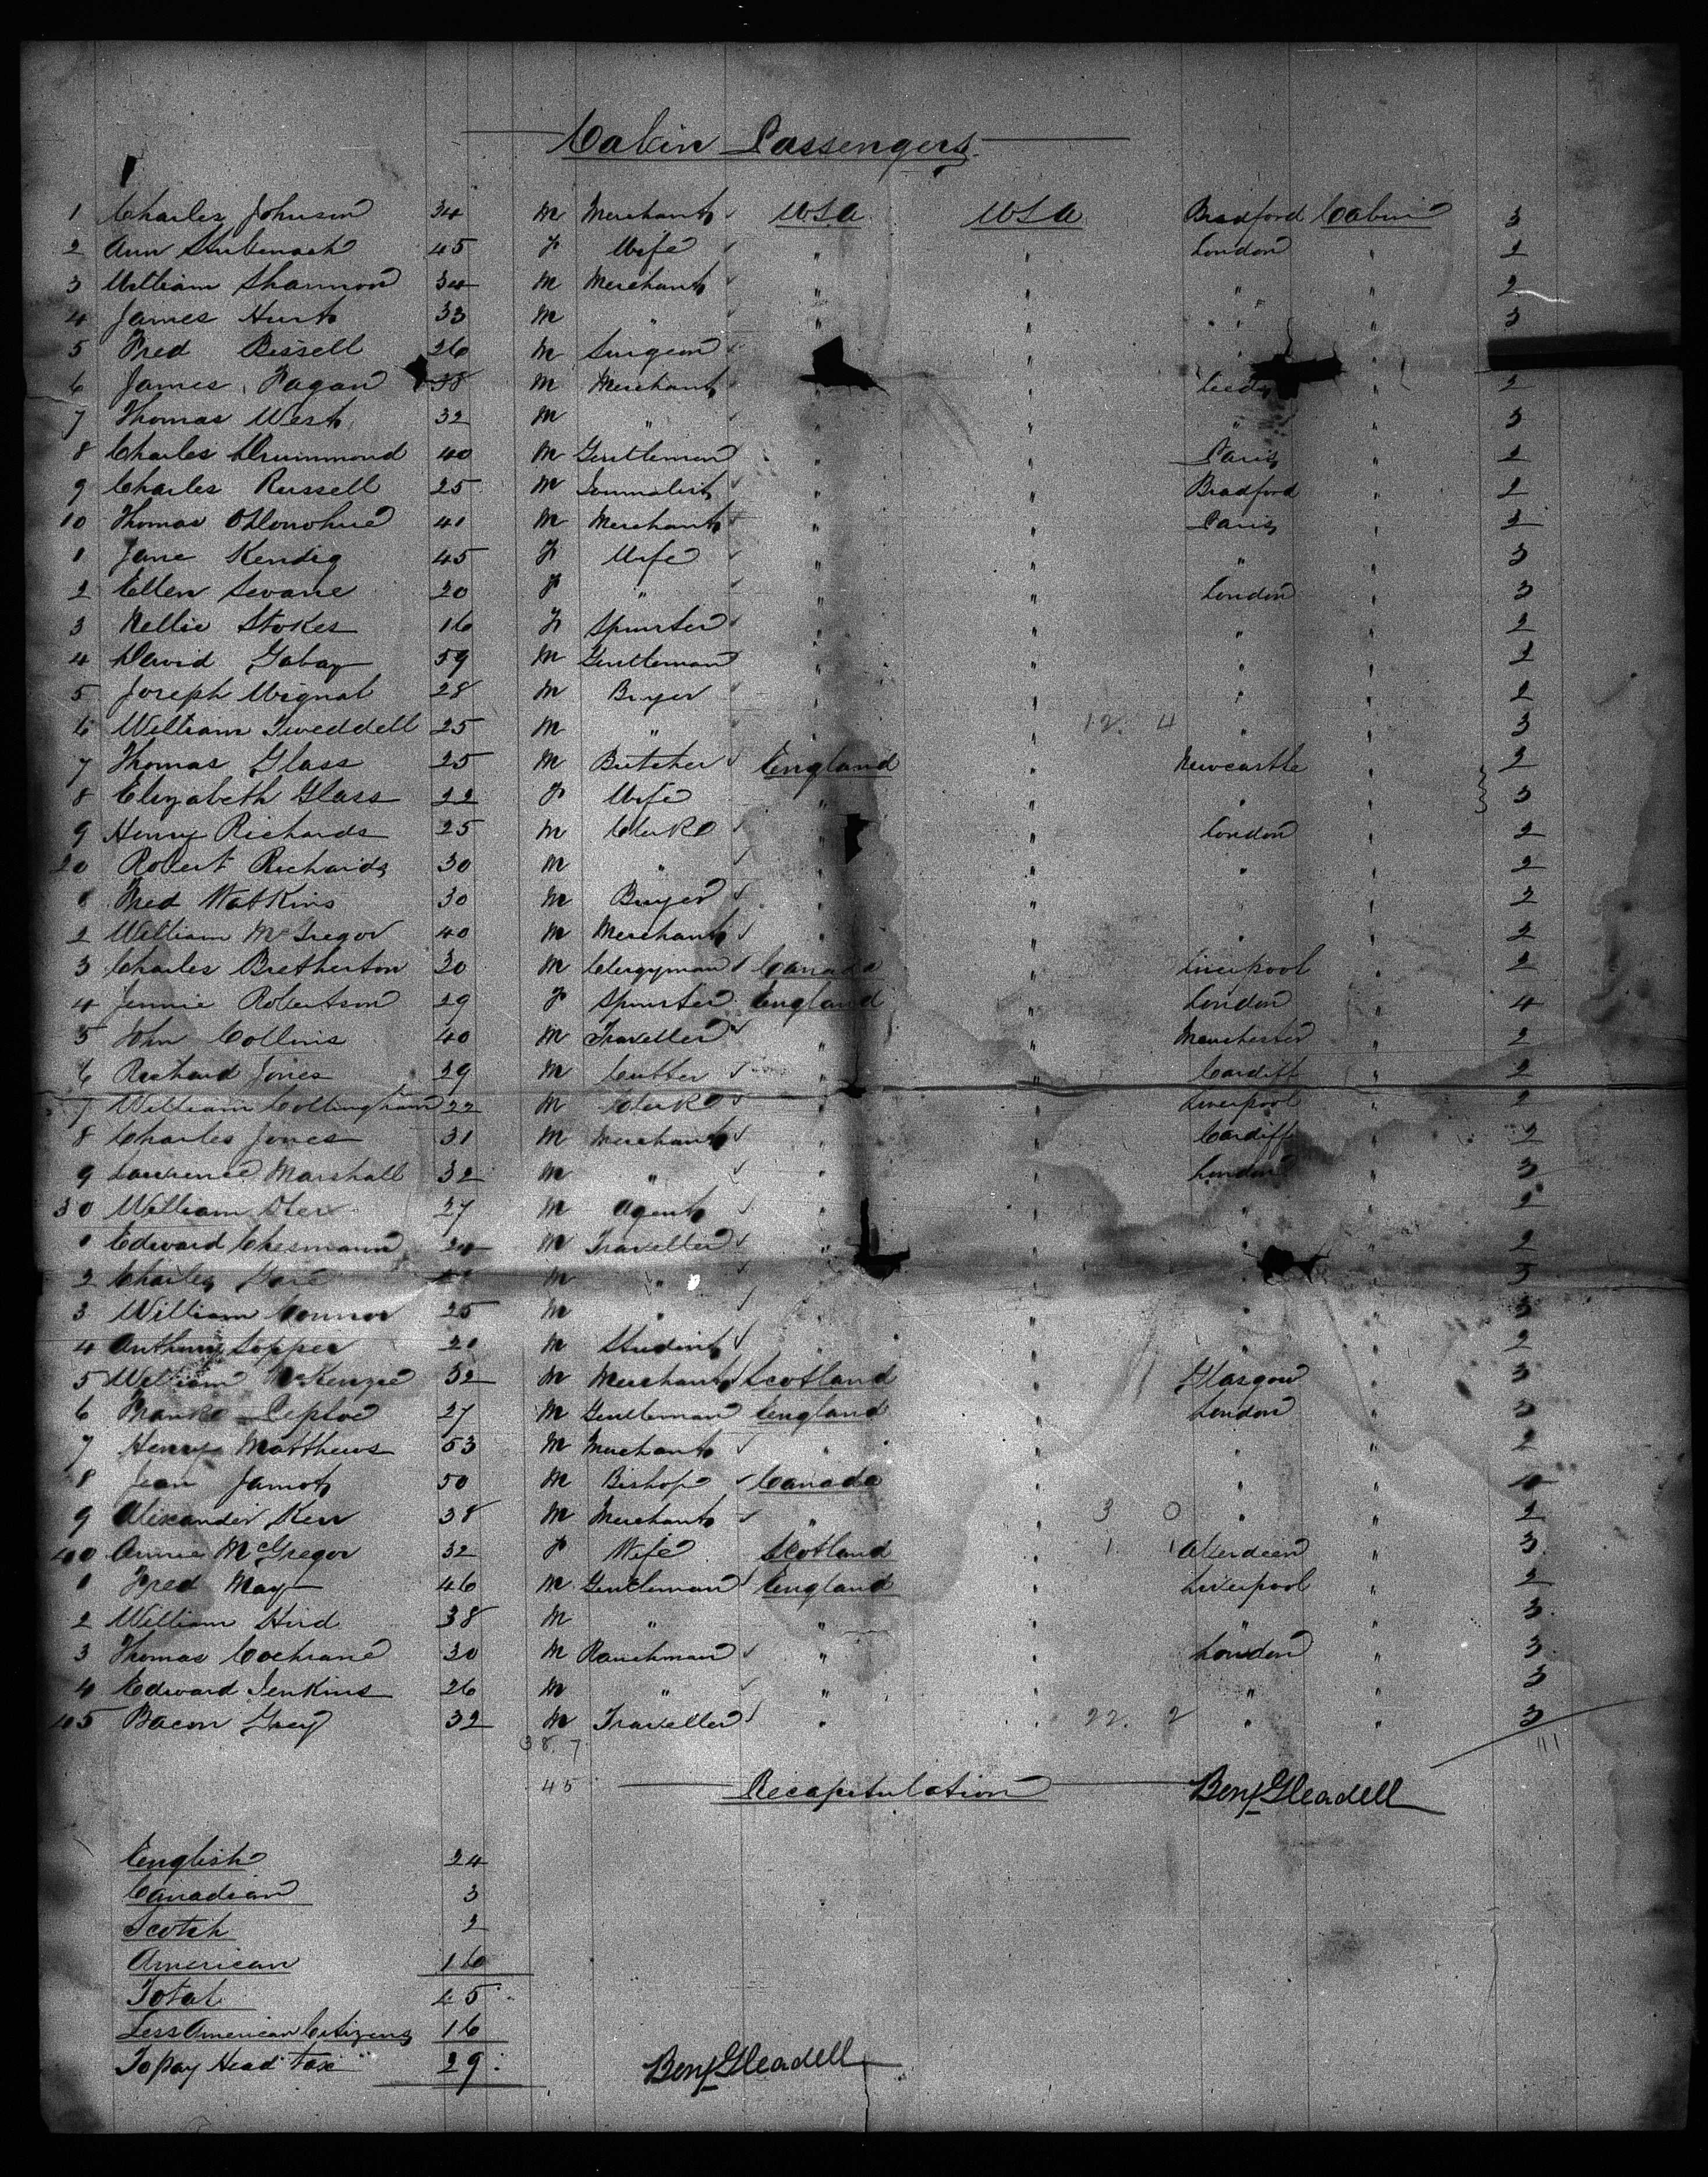 Cabin Passengers
1 Charles Johnson 34 M Merchant USA USA Bradford Cabin 3
2 Ann 45 F Wife " " London " 2
3 William Shannon 34 M Merchant " " " " 2
4 James Hurst 33 M " " " " " 3
5 Fred Bissell 26 M Surgeon " "
6 James Fagan 38 M Merchant " " Leeds " 2
7 Thomas West 32 M " " " " " 3
8 Charles Drummond 40 M Gentleman " " Paris " 2
9 Charles Russell 25 M Journalist " " Bradford " 2
10 Thomas O'Donohue 41 M Merchant " " Paris " 3
1 Jane Kendig 45 F Wife " " " " 3
2 Ellen Sevane 20 F " " " London " 3
3 Nellie Stokes 16 F Spinster " " " " 2
4 David Gabay 59 M Gentleman " " " " 2
5 Joseph Mignal 28 M Buyer " " " " 2
6 William Tweddell 25 M " " " 12. 4 " " 3
7 Thomas Glass 25 M Butcher England " Newcastle " 2
8 Elizabeth Glass 22 F Wife " " " " 3
9 Henry Richards 25 M Clerk " " London " 2
20 Robert Richards 30 M " " " " " 2
1 Fred Watkins 30 M Buyer " " " " 2
2 William McGregor 40 M Merchant " " " " 2
3 Charles Bretherton 30 M Clergyman Canada " Liverpool " 2
4 Jennie Robertson 29 F Spinster England " London " 4
5 John Collins 40 M Traveller " " Manchester " 2
6 Richard Jones 29 M Cutter " " Cardiff " 2
7 William Collingham 22 M Clerk " " Liverpool " 2
8 Charles Jones 31 M Merchant " " Cardiff " 2
9 Lawrence Marshall 32 M " " " London " 3
30 William 27 M Agent " " " " 2
1 Edward Chesmann 24 M Traveller " " " " 2
2 Charles Gare M " " " " " 3
3 William Connor 25 M " " " " " 3
4 Anthony Sopper 20 M Student " " " " 2
5 William McKenzie 32 M Merchant Scotland " Glasgow " 3
6 Frank 27 M Gentleman England " London " 3
7 Henry Matthews 53 M Merchant " " " " 2
8 Jean Jamot 50 M Bishop Canada " " " 10
9 Alexander Kerr 38 M Merchant " " 3 0 " " 2
40 Annie McGregor 32 F Wife Scotland " 1. 1 Aberdeen " 3
1 Fred May 46 M Gentleman England " Liverpool " 2
2 William Hird 38 M " " " " " 3
3 Thomas Cochrane 30 M Ranchman " " London " 3
4 Edward Jenkins 26 M " " " " " 3
45 Bacon Grey 32 M Traveller " " 22. 2 " " 3
38. 7
111
45
Recapitulation
Benj Gleadell
English 24
Canadian 3
Scotch 2
American 16
Total 45
Less American Citizens 16
To pay Head Tax 29
Benj Gleadell